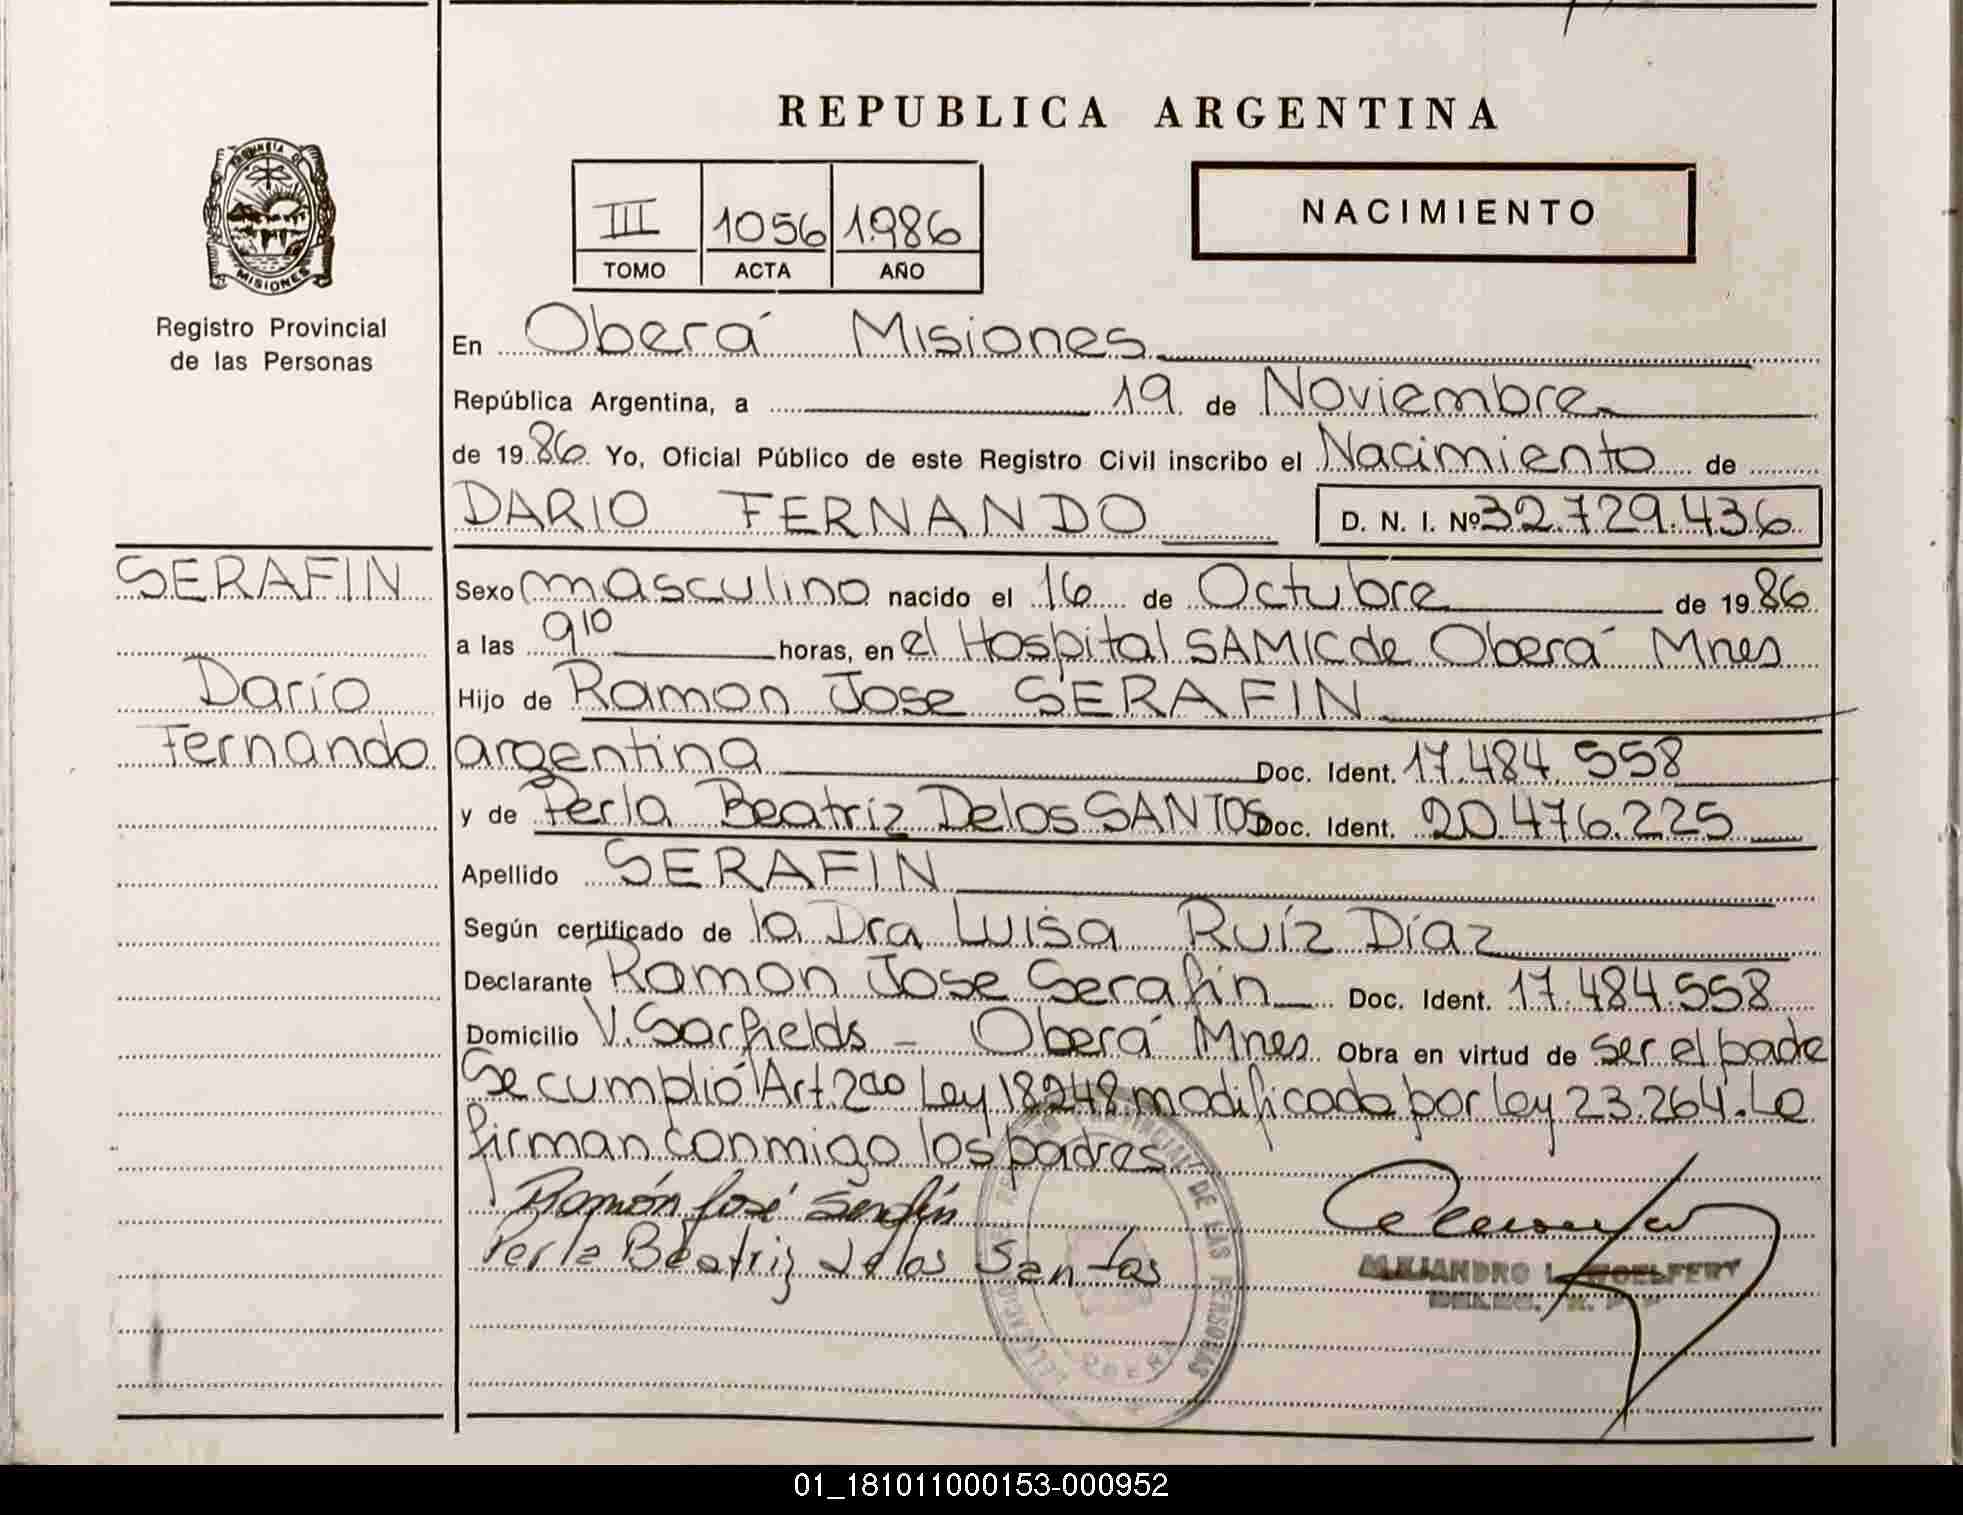 REPUBLICA ARGENTINA
PROVINCIA DE
MISIONES
Registro Provincial
de las Personas
III 1056 1986
TOMO ACTA AÑO
NACIMIENTO
En Oberá Misiones
República Argentina, a 19 de Noviembre
de 1986 Yo, Oficial Público de este Registro Civil inscribo el Nacimiento de
DARIO FERNANDO D. N. I. Nº 32.729.436
SERAFIN
Darío
Fernando
Sexo masculino nacido el 16 de Octubre de 1986
a las 9 10 horas, en el Hospital SAMIC de Oberá Mnes
Hijo de Ramon Jose SERAFIN
argentina Doc. Ident. 17.484.558
y de Perla Beatríz De los SANTOS Doc. Ident. 20.476.225
Apellido SERAFIN
Según certificado de la Dra Luisa Ruíz Díaz
Declarante Ramon Jose Serafin Doc. Ident. 17.484.558
Domicilio V. Sarfields - Oberá Mnes Obra en virtud de ser el padre
Se cumplió Art. 2do Ley 18.248 modificada por ley 23.264. Lo
firman conmigo los padres
Ramón José Serafín
Perla Beatriz De los Santos
ALEJANDRO L. WOELFERT
PROVINCIAL DE LAS PERSONAS
01_181011000153-000952